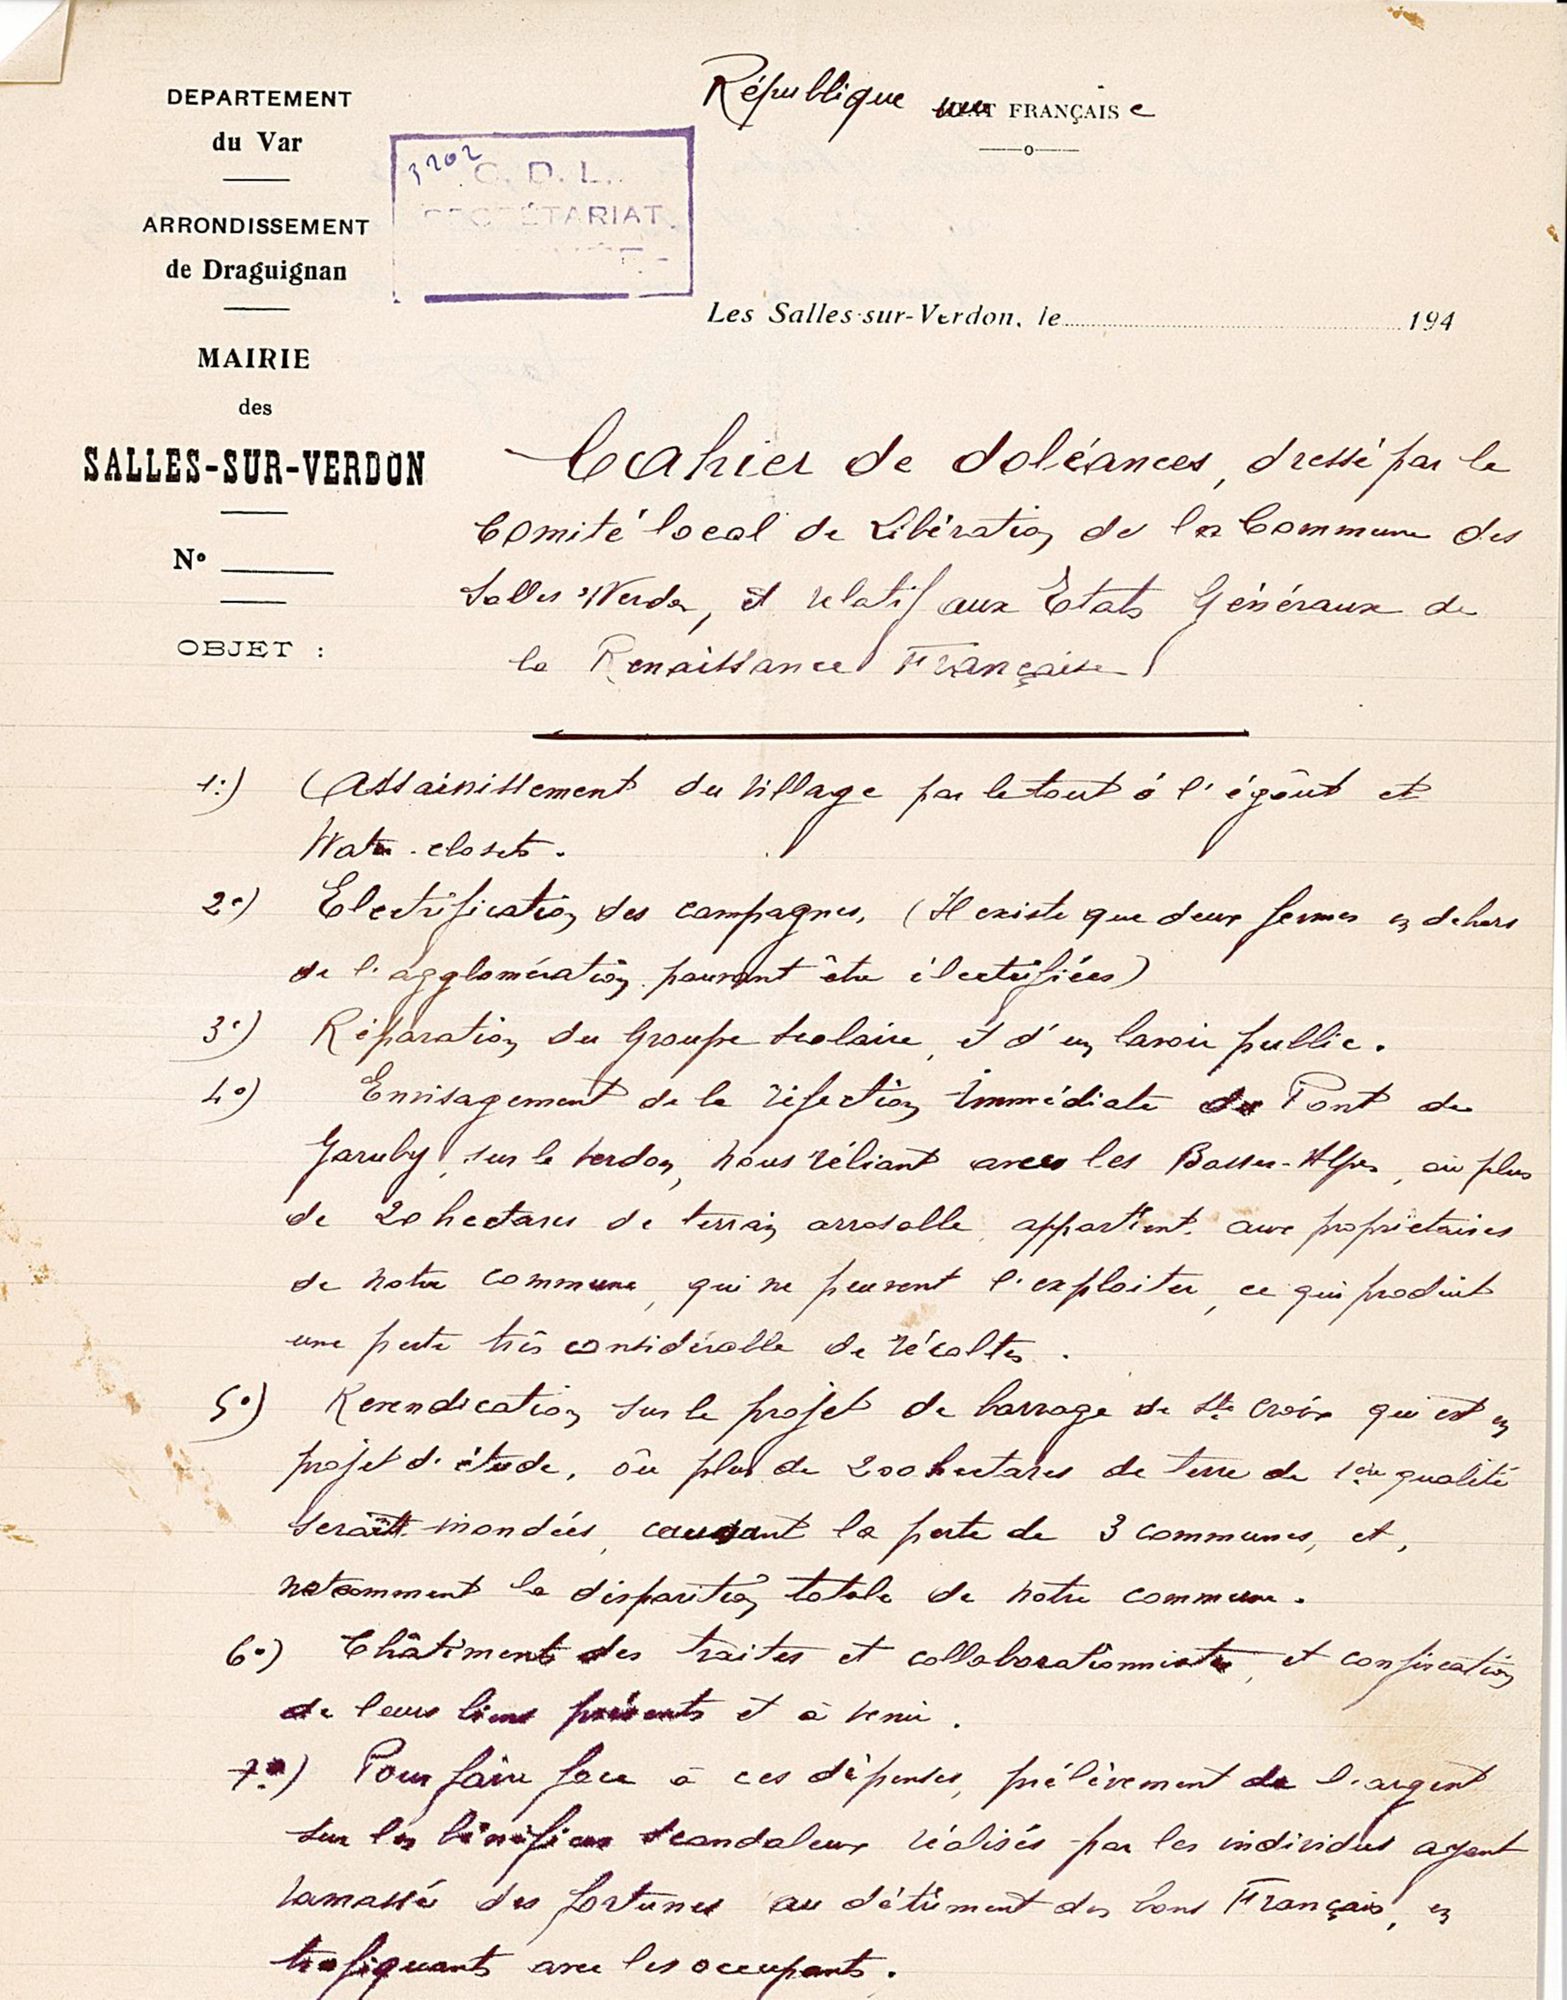 DEPARTEMENT
du Var
ARRONDISSEMENT
de Draguignan
MAIRIE
des
SALLES-SUR-VERDON
N°
OBJET :
République FRANÇAISe
3202
C. D. L.
SECRÉTARIAT
Les Salles-sur-Verdon, le 194
Cahier de doléances, dressé par le
Comité local de Libération de la Commune des
Salles s/Verdon, et relatif aux Etats Généraux de
la Renaissance Française
1°) Assainissement du village par le tout à l'égoût et
Water-closets.
2°) Electrification des campagnes, (Il existe que deux fermes en dehors
de l'agglomération pouvant être électrifiées)
3°) Réparation du Groupe scolaire, et d'un lavoir public.
4°) Envisagement de la réfection immédiate du Pont de
Garuby, sur le Verdon, nous réliant avec les Basses-Alpes, où plus
de 20 hectares de terrain arrosable, appartient aux propriétaires
de notre commune, qui ne peuvent l'exploiter, ce qui produit
une perte très considérable de récoltes.
5°) Revendication sur le projet de barrage de Ste Croix qui est en
projet d'étude, où plus de 200 hectares de terre de 1ère qualité
seraint inondées, causant la perte de 3 communes, et,
notamment la disparition totale de notre commune.
6°) Châtiments des traites et collaborationnistes, et confiscation
de leurs biens présents et à venir.
7°) Pour faire face à ces dépenses, prélèvement de l'argent
sur les bénéfices scandaleux réalisés par les individus ayant
ramassé des fortunes au détriment des bons Français, en
trafiquants avec les occupants.